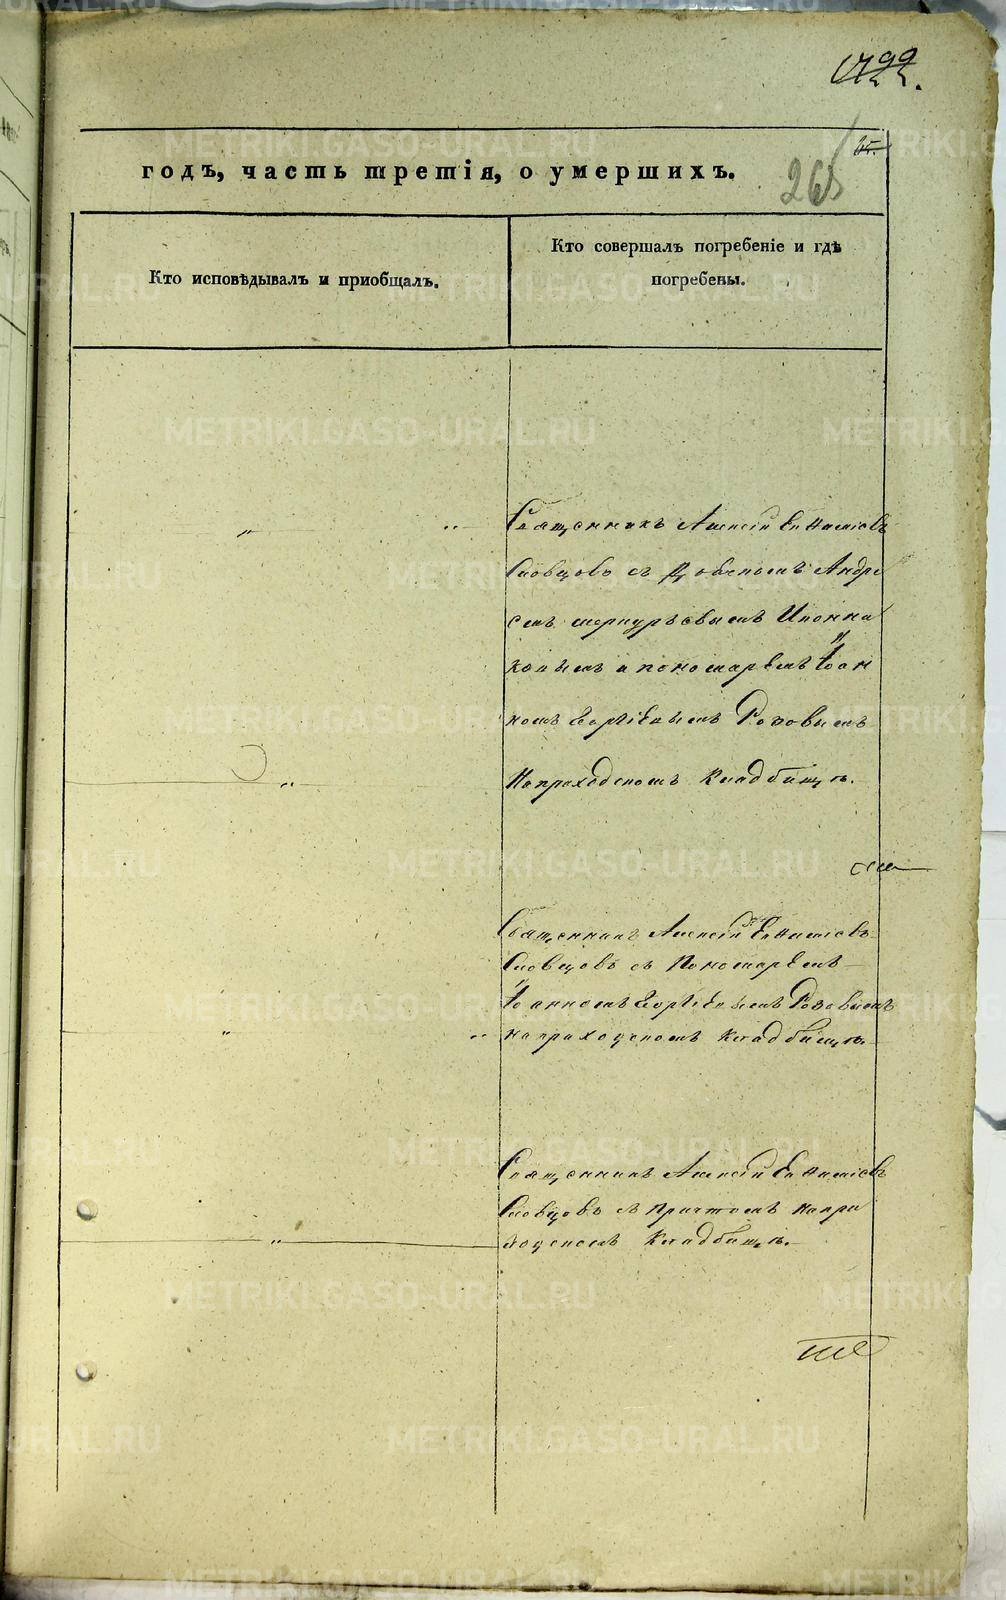 265
годъ, часть третія, о умершихъ.
Кто исповѣдывалъ и приобщалъ.
Кто совершалъ погребеніе и гдѣ
погребены.
Священникъ Алексій
Словцовъ съ Андре
емъ
и пономаремъ Іоан
номъ Георгіевымъ Розовымъ
На приходскомъ Кладбищѣ.
Священникъ Алексій
Словцовъ съ Пономаремъ
Іоанномъ Георгіевымъ Розовымъ
на приходскомъ Кладбищѣ.
Священникъ Алексій
Словцовъ съ Причтомъ на при
ходскомъ Кладбищѣ.
METRIKI.GASO-URAL.RU